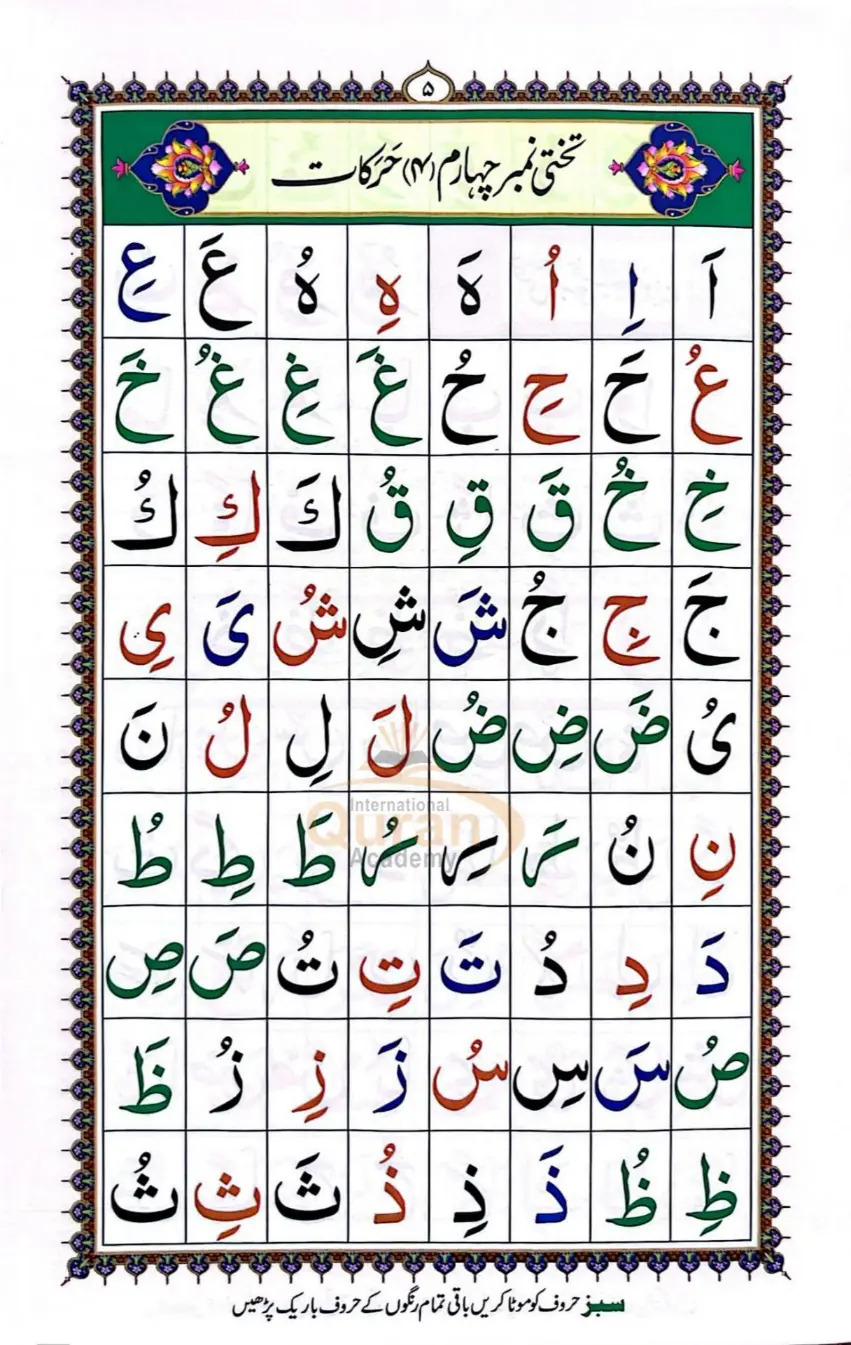 ۵
تختی نمبر چہارم (۴) حَرَکات
اَ اِ اُ ہَ ہِ ہُ عَ عِ
عُ حَ حِ حُ غَ غِ غُ خَ
خِ خُ قَ قِ قُ كَ كِ كُ
جَ جِ جُ شَ شِ شُ یَ یِ
یُ ضَ ضِ ضُ لَ لِ لُ نَ
نِ نُ رَ رِ رُ طَ طِ طُ
دَ دِ دُ تَ تِ تُ صَ صِ
صُ سَ سِ سُ زَ زِ زُ ظَ
ظِ ظُ ذَ ذِ ذُ ثَ ثِ ثُ
International
Quran
Academy
سبز حروف کو موٹا کریں باقی تمام رنگوں کے حروف باریک پڑھیں